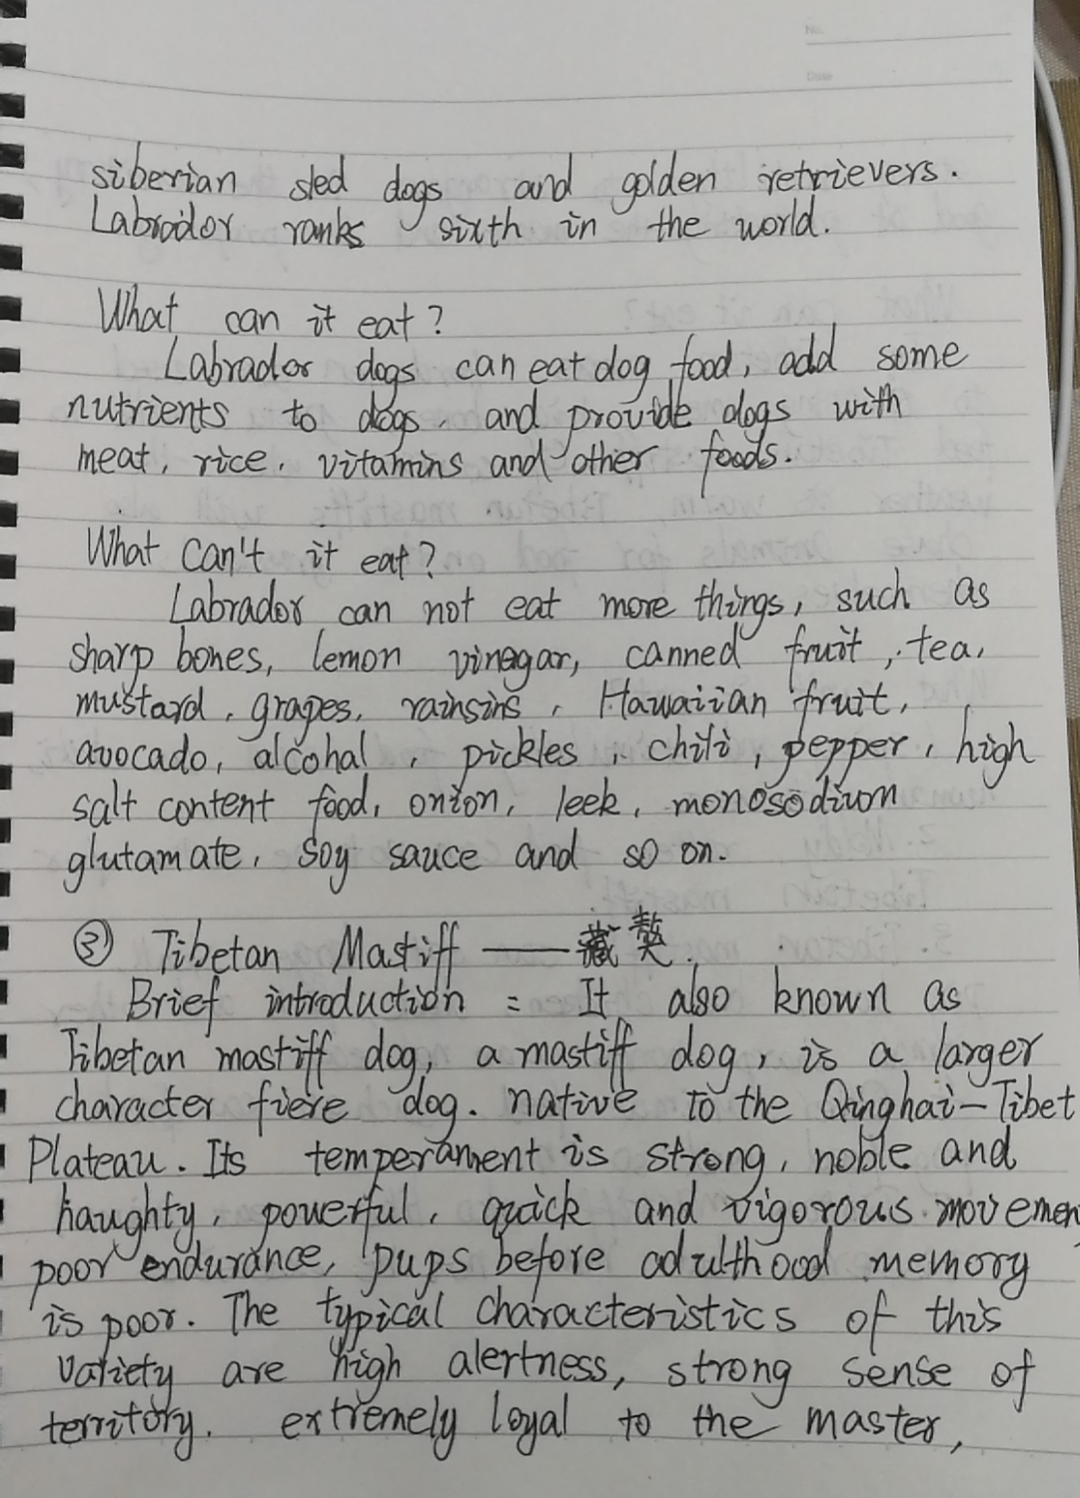 No.
Date
siberian sled dogs and golden retrievers.
Labrador ranks sixth in the world.
What can it eat?
Labrador dogs can eat dog food, add some
nutrients to dogs, and provide dogs with
meat, rice, vitamins and other foods.
What can't it eat?
Labrador can not eat more things, such as
sharp bones, lemon vinegar, canned fruit, tea,
mustard, grapes, rainsins, Hawaiian fruit,
avocado, alcohal, pickles, chili, pepper, high
salt content food, onion, leek, monosodium
glutamate, soy sauce and so on.
③ Tibetan Mastiff —— 藏獒.
Brief introduction = It also known as
Tibetan mastiff dog, a mastiff dog, is a larger
character fiere dog. native to the Qinghai-Tibet
Plateau. Its temperament is strong, noble and
haughty, powerful, quick and vigorous movemen
poor endurance, pups before adulthood memory
is poor. The typical characteristics of this
variety are high alertness, strong sense of
territory. extremely loyal to the master,